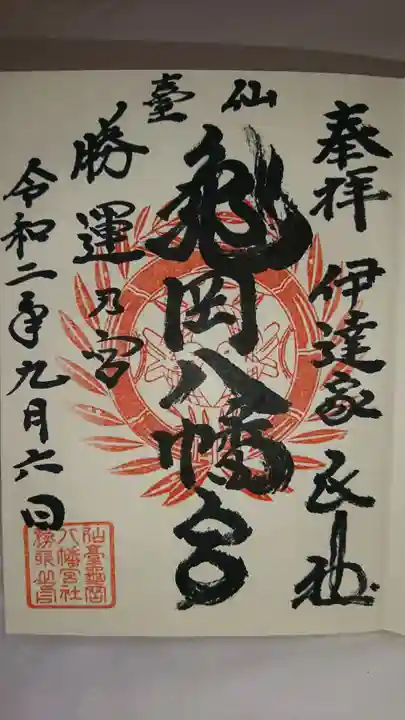 奉拝
伊達家氏神
仙臺
亀岡八幡宮
勝運乃宮
令和二年九月六日
仙臺龜岡
八幡宮社
務張之印